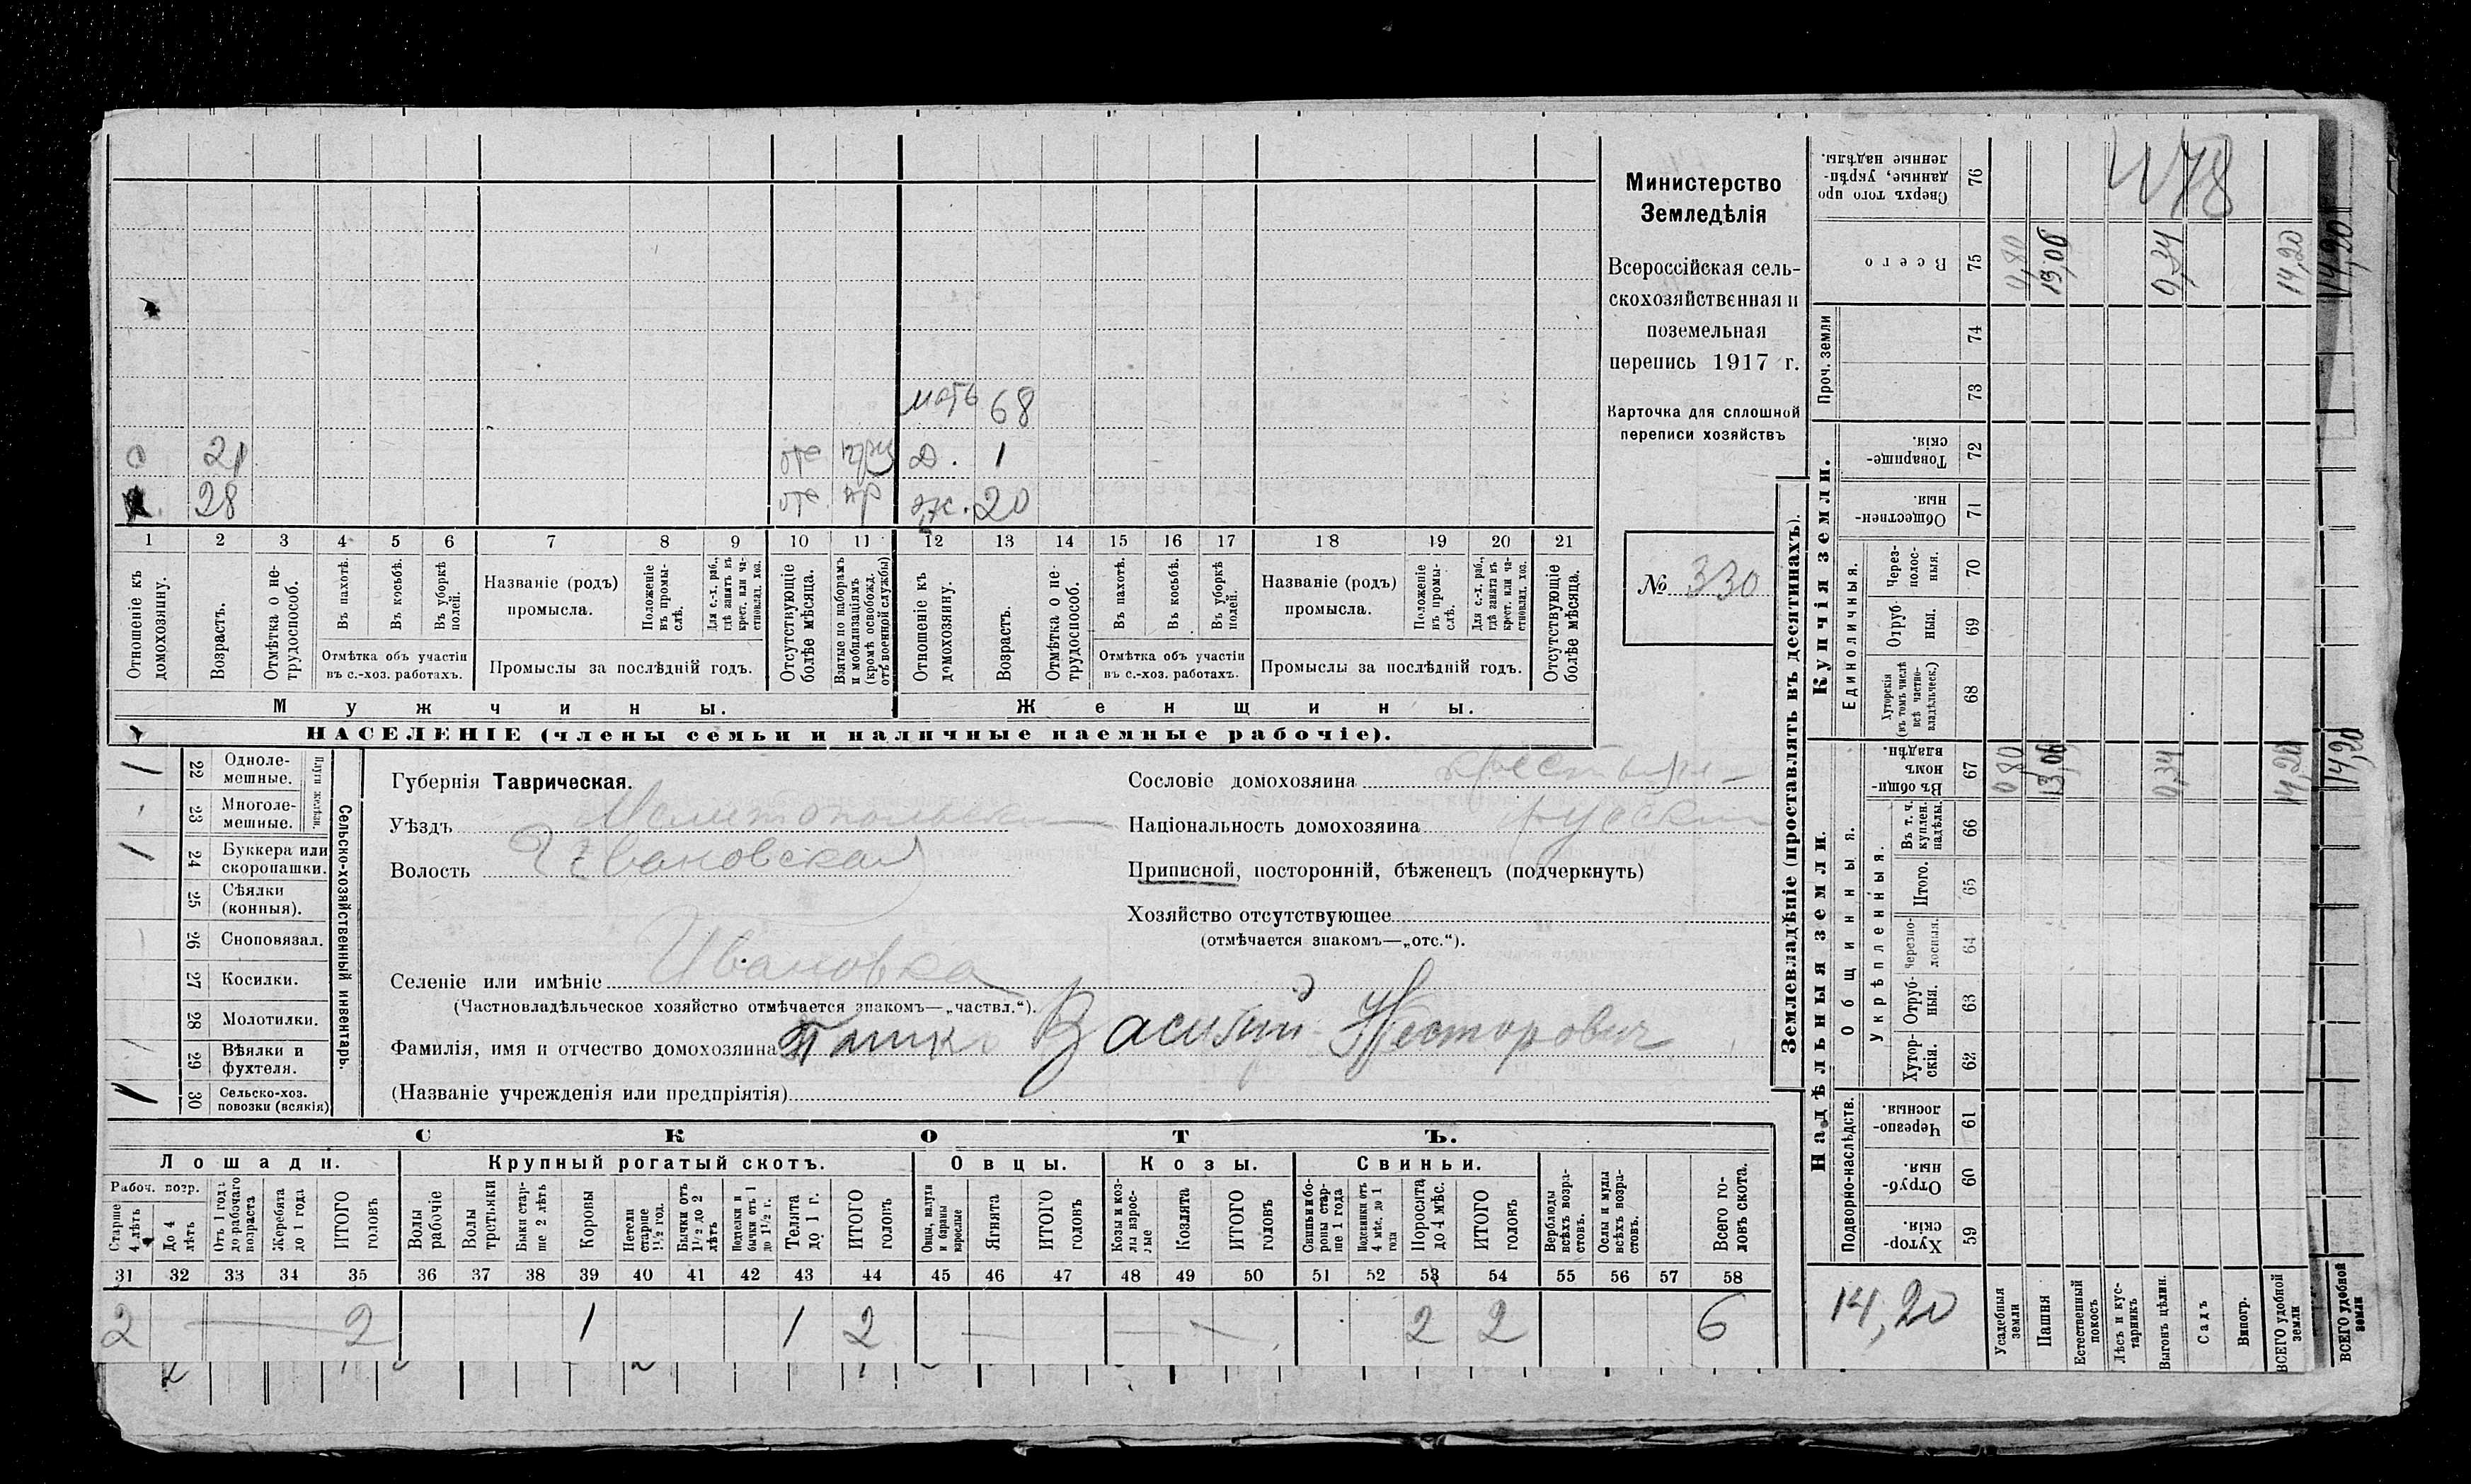 мать 68
о 21 отс приз Д. 1
х. 28 отс. пр ж. 20
1 2 3 4 5 6 7 8 9 10 11 12 13 14 15 16 17 18 19 20 21
Отношеніе къ домохозяину.
Возрастъ.
Отмѣтка о не-
трудоспособ.
Въ пахотѣ.
Въ косьбѣ.
Въ уборкѣ
полей.
Отмѣтка объ участіи
въ с.-хоз. работахъ.
Названіе (родъ)
промысла.
Положеніе
въ промы-
слѣ.
Для с.-х. раб.,
гдѣ занятъ въ
крест. или ча-
стновлад. хоз.
Промыслы за послѣдній годъ.
Отсутствующіе
болѣе мѣсяца.
Взятые по наборамъ
и мобилизаціямъ
(кромѣ освобожд.
отъ военной службы)
Отношеніе къ
домохозяину.
Возрастъ.
Отмѣтка о не-
трудоспособ.
Въ пахотѣ.
Въ косьбѣ.
Въ уборкѣ
полей.
Отмѣтка объ участіи
въ с.-хоз. работахъ.
Названіе (родъ)
промысла.
Положеніе
въ промы-
слѣ.
Для с.-х. раб.,
гдѣ занята въ
крест. или ча-
стновлад. хоз.
Промыслы за послѣдній годъ.
Отсутствующіе
болѣе мѣсяца.
Мужчины. Женщины.
НАСЕЛЕНІЕ (члены семьи и наличные наемные рабочіе).
Министерство
Земледѣлія
Всероссійская сель-
скохозяйственная и
поземельная
перепись 1917 г.
Карточка для сплошной
переписи хозяйствъ
№ 330
1 22 Однолемешные.
23 Многолемешные.
Плуги желѣзн.
1 24 Буккера или
скоропашки.
25 Сѣялки
(конныя).
26 Сноповязал.
27 Косилки.
28 Молотилки.
29 Вѣялки и
фухтеля.
1 30 Сельско-хоз.
повозки (всякія)
Сельско-хозяйственный инвентарь.
Губернія Таврическая.
Уѣздъ Мелитопольскій
Волость Ивановская
Селеніе или имѣніе Ивановка
(Частновладѣльческое хозяйство отмѣчается знакомъ—„частвл.“).
Фамилія, имя и отчество домохозяина Василій Несторович
(Названіе учрежденія или предпріятія)
Сословіе домохозяина крестьян
Національность домохозяина русскій
Приписной, посторонній, бѣженецъ (подчеркнуть)
Хозяйство отсутствующее
(отмѣчается знакомъ—„отс.“).
СКОТЪ.
Лошади. Крупный рогатый скотъ. Овцы. Козы. Свиньи.
Рабоч. возр.
Старше
4 лѣтъ
До 4
лѣтъ
Отъ 1 года
до рабочаго
возраста
Жеребята
до 1 года
ИТОГО
головъ
Волы
рабочіе
Волы
третьяки
Быки стар-
ше 2 лѣтъ
Коровы
Нетели
старше
1½ год.
Бычки отъ
1½ до 2
лѣтъ
Подтелки и
бычки отъ 1
до 1½ г.
Телята
до 1 г.
ИТОГО
головъ
Овцы, валухи
и бараны
взрослые
Ягнята
ИТОГО
головъ
Козы и коз-
лы взрос-
лые
Козлята
ИТОГО
головъ
Свиньи и бо-
ровы стар-
ше 1 года
Подсвинки отъ
4 мѣс. до 1
года
Поросята
до 4 мѣс.
ИТОГО
головъ
Верблюды
всѣхъ возра-
стовъ.
Ослы и мулы
всѣхъ возра-
стовъ.
Всего го-
ловъ скота.
31 32 33 34 35 36 37 38 39 40 41 42 43 44 45 46 47 48 49 50 51 52 53 54 55 56 57 58
2 2 1 1 2 2 2 6
Землевладѣніе (проставлять въ десятинахъ).
Надѣльныя земли.
Подворно-наслѣдств.
Хутор-
скія. 59
Отруб-
ныя. 60
Черезпо-
лосныя. 61
Общинныя.
Укрѣпленныя.
Хутор-
скія. 62
Отруб-
ныя. 63
Черезпо-
лосныя 64
Итого. 65
Въ т. ч.
куплен.
надѣлы. 66
Въ общи-
номъ
владѣн. 67
Купчія земли.
Единоличныя.
Хуторскія
(въ томъ числѣ
всѣ частно-
владѣльческ.) 68
Отруб
ныя. 69
Через-
полос-
ныя. 70
Обществен-
ныя. 71
Товарище-
скія. 72
Проч. земли
73 74
Всего 75
Сверхъ того про
данные, укрѣп-
ленные надѣлы. 76
14,20
Усадебныя
земли 0,80
Пашня 13,06 13,06
Естественный
покосъ
Лѣсъ и кус-
тарникъ
Выгонъ цѣлин. 0,34 0,34
Садъ
Виногр.
ВСЕГО удобной
земли 14,20 14,20
ВСЕГО удобной
земли 14,20 14,20